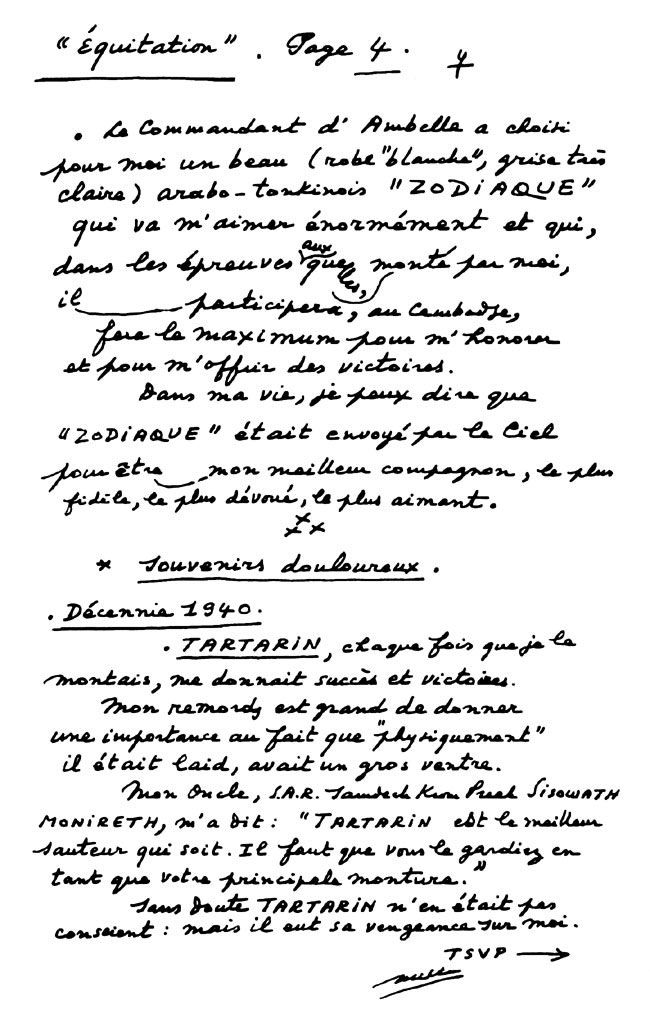 "Équitation". Page 4. 4
• Le Commandant d'Ambelle a choisi
pour moi un beau (robe "blanche", grise très
claire) arabo-tonkinois "ZODIAQUE"
qui va m'aimer énormément et qui,
dans les épreuves auxquelles, monté par moi,
il participera, au Cambodge,
fera le maximum pour m'honorer
et pour m'offrir des victoires.
Dans ma vie, je peux dire que
"ZODIAQUE" était envoyé par le Ciel
pour être mon meilleur compagnon, le plus
fidèle, le plus dévoué, le plus aimant.
xxx
* Souvenirs douloureux.
. Décennie 1940.
. TARTARIN, chaque fois que je le
montais, me donnait succès et victoires.
Mon remords est grand de donner
une importance au fait que "physiquement"
il était laid, avait un gros ventre.
Mon Oncle, S.A.R. Samdech Krom Preah SISOWATH
MONIRETH, m'a dit : "TARTARIN est le meilleur
sauteur qui soit. Il faut que vous le gardiez en
tant que votre principale monture."
Sans doute TARTARIN n'en était pas
conscient : mais il eut sa vengeance sur moi.
TSVP →